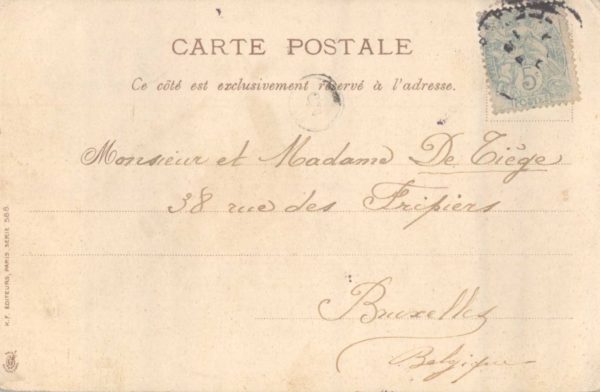 CARTE POSTALE
Ce côté est exclusivement réservé à l'adresse.
5c
POSTES
Monsieur et Madame De Tiège
38 rue des Fripiers
Bruxelles
Belgique
K.F. EDITEURS, PARIS SERIE 588.